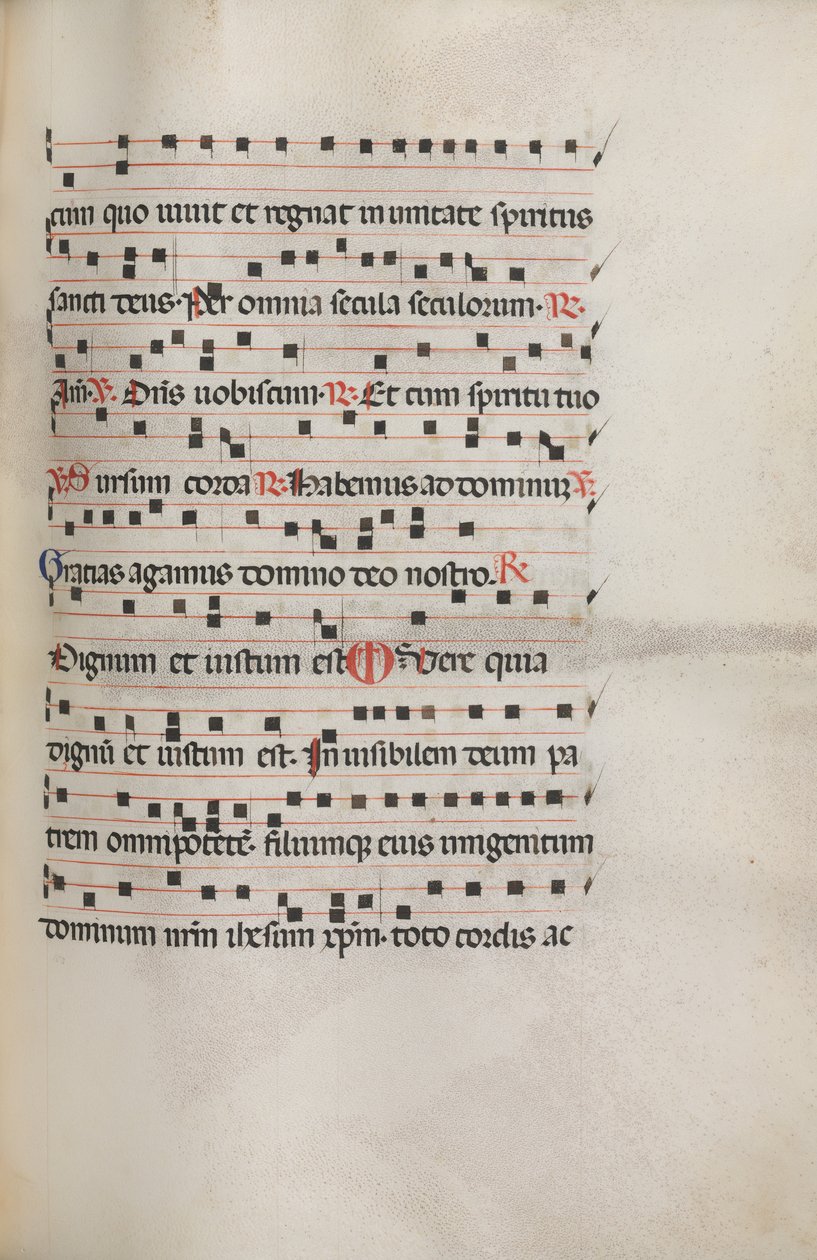 cum quo uiuit et regnat in unitate spiritus
sancti deus. Per omnia secula seculorum. R.
Am̄. V. Dn̄s uobiscum. R. Et cum spiritu tuo
V. Sursum corda R. Habemus ad dominuȝ V.
Gratias agamus domino deo nostro. R
Dignum et iustum est Vere quia
dignū et iustum est. In uisibilem deum pa
trem omnipotētē. filiumqꝫ eius unigenitum
dominum nr̄m ihesum xp̄m. toto cordis ac